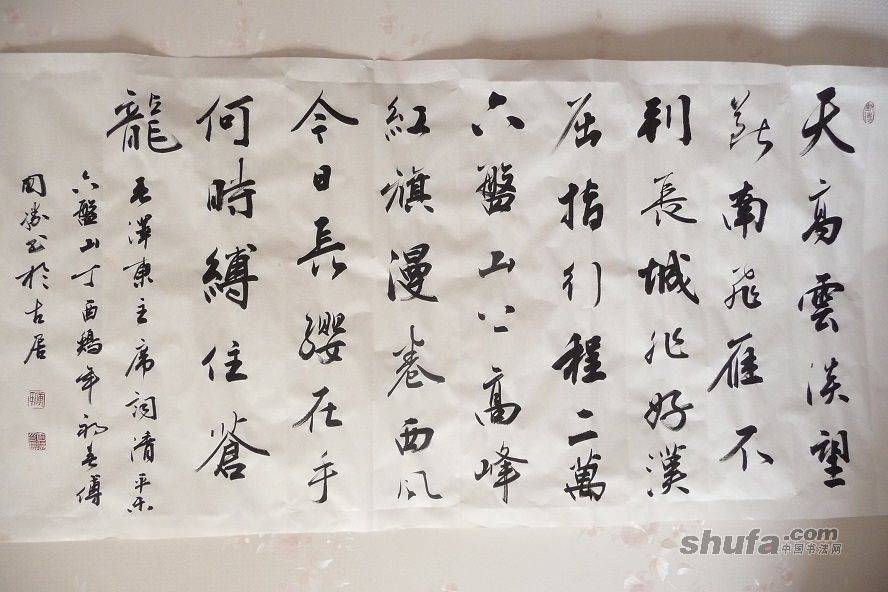 天高雲淡望
斷南飛雁不
到長城非好漢
屈指行程二萬
六盤山上高峰
紅旗漫卷西風
今日長纓在手
何時縛住蒼
龍
毛澤東主席詞清平乐
六盤山丁酉鷄年初春傅
国勝书於古居
shufa.com
中国书法网